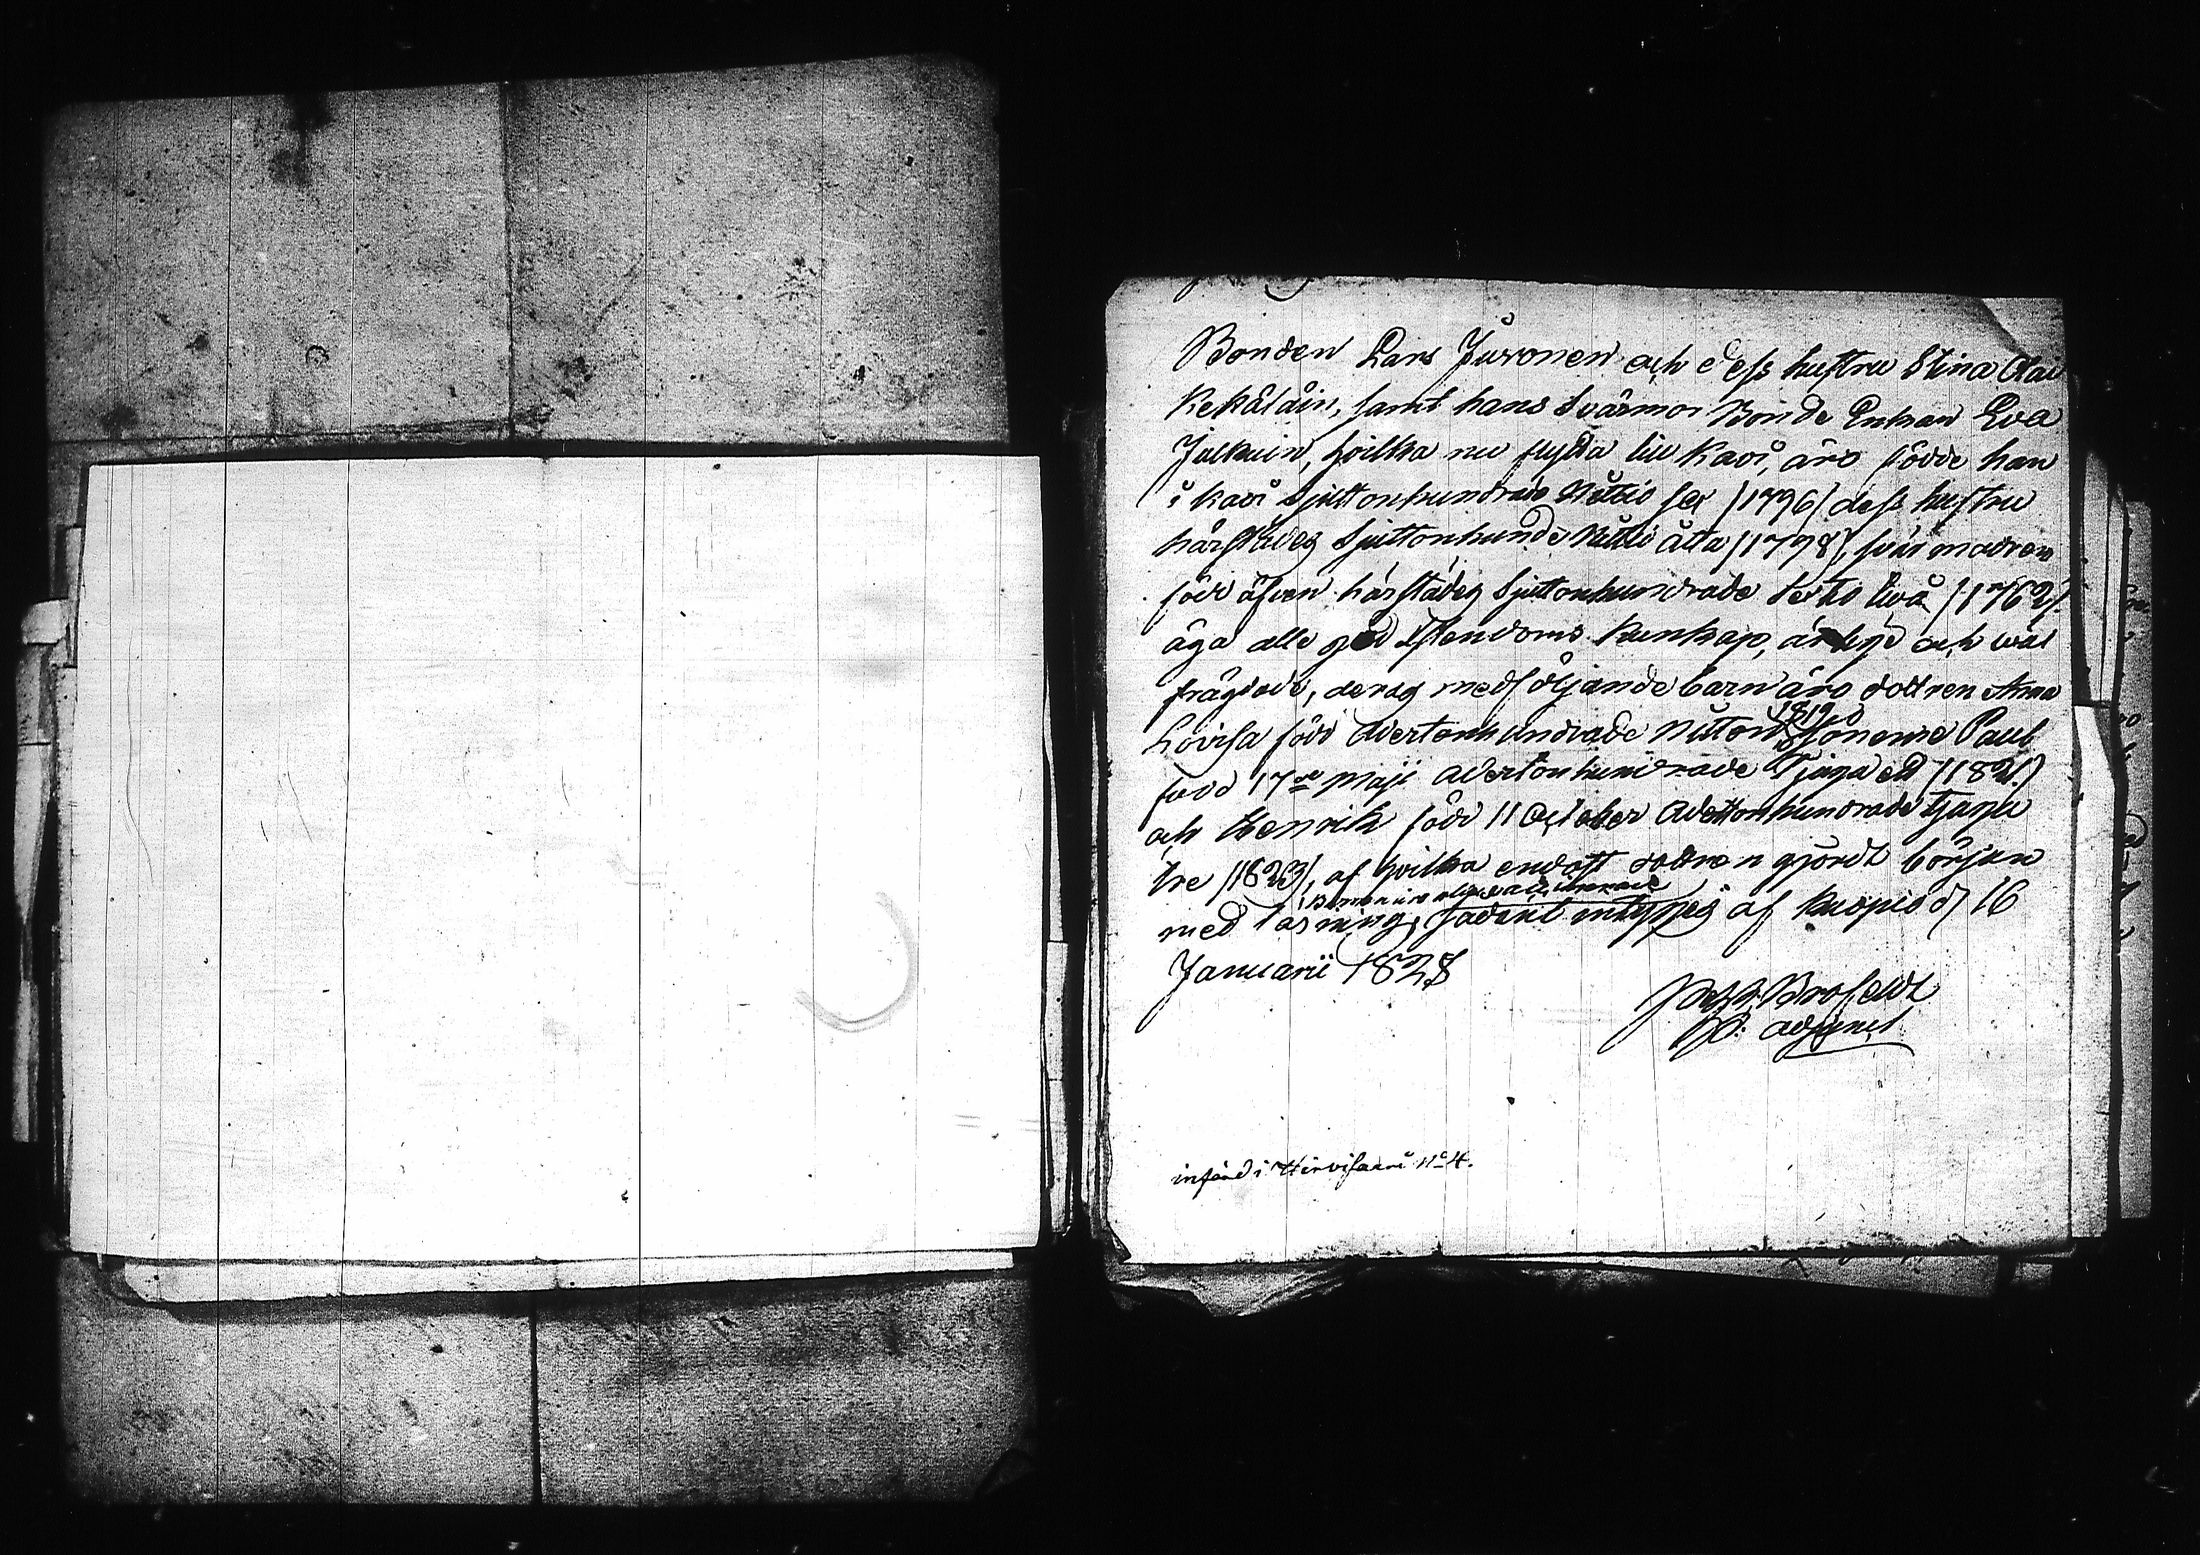 Bonden Lars Juvonen och dess hustru Stina
Kekäläin, samt hans Svärmor Bonde Enkan Eva
Jalkain, hvilka nu flytta till Kavi, äro födde han
i Kavi Sjuttonhundrade Nittio sex /1796/ dess hustru
härstädes Sjuttonhunde Nitti åtta /1798/, svärmodren
född äfven härstädes Sjuttonhundrade Sextio två /1762/.
äga alle god Christendoms Kunskap, ärlige och wäl
frägdade, deras medföljande barn äro dottren Anna
Lovisa född Adertonhundrade Nitton 1819 sönerne Paul
född 17de Maji Adertonhundrade Tjugu ett /1821/
och Henrik född 11 October Adertonhundrade tjugu
tre /1823/, af hvilka endast dottren gjordt början
med läsning,
Barnen äro
sådant intygas af Kuopio d/ 16
Januarii 1828
Brofeldt
Adjunct
införd i Hirvisaari No 4.